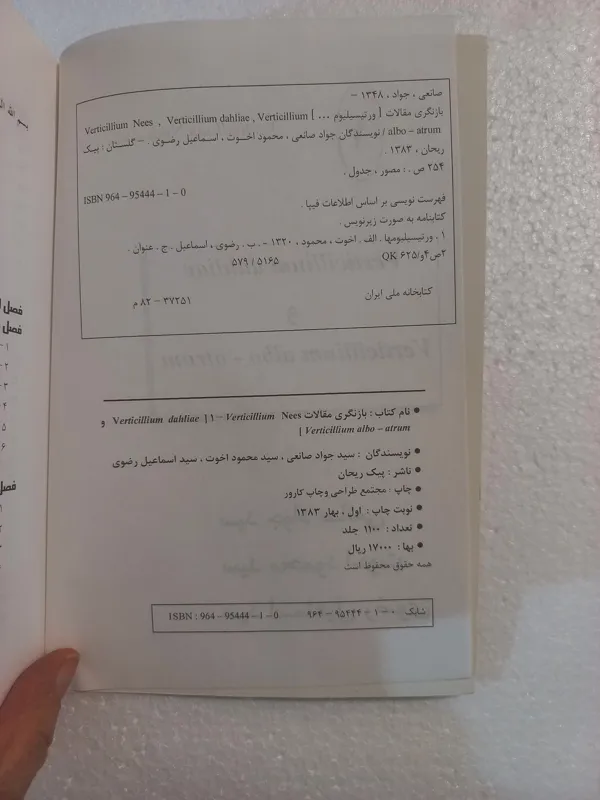 صانعی ، جواد ، ۱۳۴۸ –
بازنگری مقالات [ ورتیسیلیوم ... ] Verticillium Nees , Verticillium dahliae , Verticillium
albo – atrum / نویسندگان جواد صانعی ، محمود اخوت ، اسماعیل رضوی . – گلستان : پیک
ریحان ، ۱۳۸۳ .
۲۵۴ ص . : مصور ، جدول .
ISBN 964 – 95444 – 1 – 0
فهرست نویسی بر اساس اطلاعات فیپا .
کتابنامه به صورت زیرنویس .
۱ . ورتیسیلیومها . الف . اخوت ، محمود ، ۱۳۲۰ – . ب . رضوی ، اسماعیل . ج . عنوان .
۲ص۴و/۶۲۵ QK ۵۱۶۵ / ۵۷۹
کتابخانه ملی ایران ۳۷۲۵۱ – ۸۲ م
● نام کتاب : بازنگری مقالات Verticillium Nees – ۱] Verticillium dahliae و
[ Verticillium albo – atrum
● نویسندگان : سید جواد صانعی ، سید محمود اخوت ، سید اسماعیل رضوی
● ناشر : پیک ریحان
● چاپ : مجتمع طراحی وچاپ کارور
● نوبت چاپ : اول ، بهار ۱۳۸۳
● تعداد : ۱۱۰۰ جلد
● بها : ۱۷۰۰۰ ریال
همه حقوق محفوظ است
شابک ۰ – ۱ – ۹۵۴۴۴ – ۹۶۴ ISBN : 964 – 95444 – 1 – 0